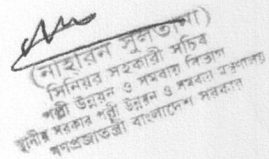 (নাহারিন সুলতানা)
সিনিয়র সহকারী সচিব
পল্লী উন্নয়ন ও সমবায় বিভাগ
স্থানীয় সরকার পল্লী উন্নয়ন ও সমবায় মন্ত্রণালয়
গণপ্রজাতন্ত্রী বাংলাদেশ সরকার